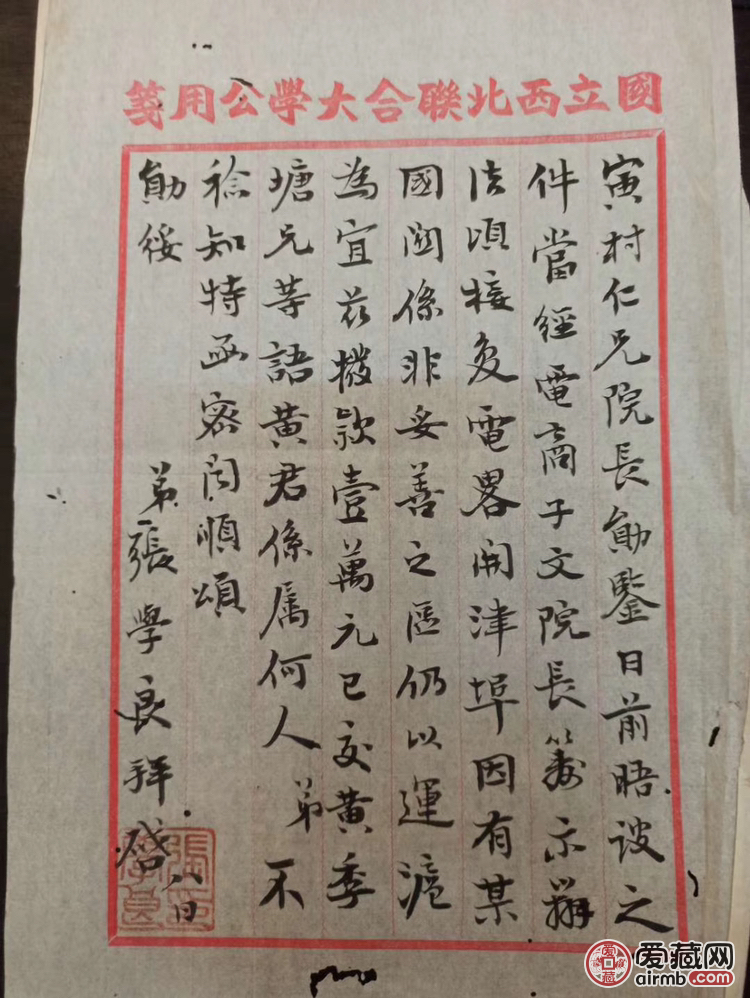 國立西北聯合大學公用箋
寅村仁兄院長勛鑒日前晤談之
件當經電商子文院長籌示辦
法頃接復電畧開津埠因有某
國關係非妥善之區仍以運滬
為宜茲撥款壹萬元已交黃季
塘兄等語黃君係屬何人弟不
稔知特函密聞順頌
勛綏
弟張學良拜啓八日
張學良
爱藏网
airmb.com